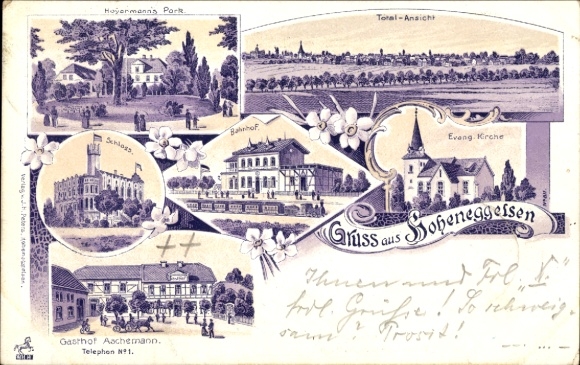 Heyermann's Park.
Total-Ansicht
Schloss.
Bahnhof.
Evang. Kirche
Gruss aus Hoheneggelsen
Gasthof Aachemann.
Telephon No 1.
Ihnen und Frl. „X."
frdl. Grüße! So schweig-
sam? Prosit!
Verlag v. J. H. Peters, Hoheneggelsen.